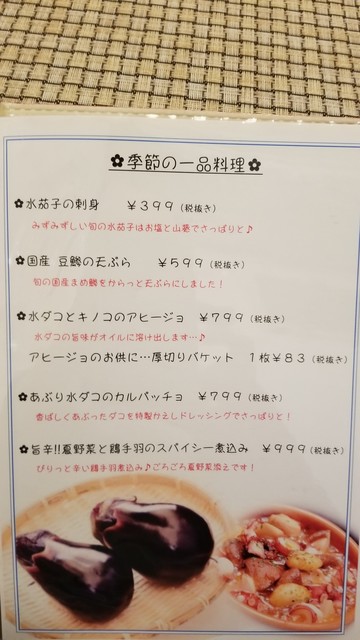 ✿季節の一品料理✿
✿水茄子の刺身 ¥399(税抜き)
みずみずしい旬の水茄子はお塩と山葵でさっぱりと♪
✿国産 豆鯵の天ぷら ¥599(税抜き)
旬の国産まめ鯵をからっと天ぷらにしました!
✿水ダコとキノコのアヒージョ ¥799(税抜き)
水ダコの旨味がオイルに溶け出します…♪
アヒージョのお供に…厚切りバケット 1枚¥83(税抜き)
✿あぶり水ダコのカルパッチョ ¥799(税抜き)
香ばしくあぶったダコを特製かえしドレッシングでさっぱりと!
✿旨辛!!夏野菜と鶏手羽のスパイシー煮込み ¥999(税抜き)
ぴりっと辛い鶏手羽煮込み♪ごろごろ夏野菜添えです!